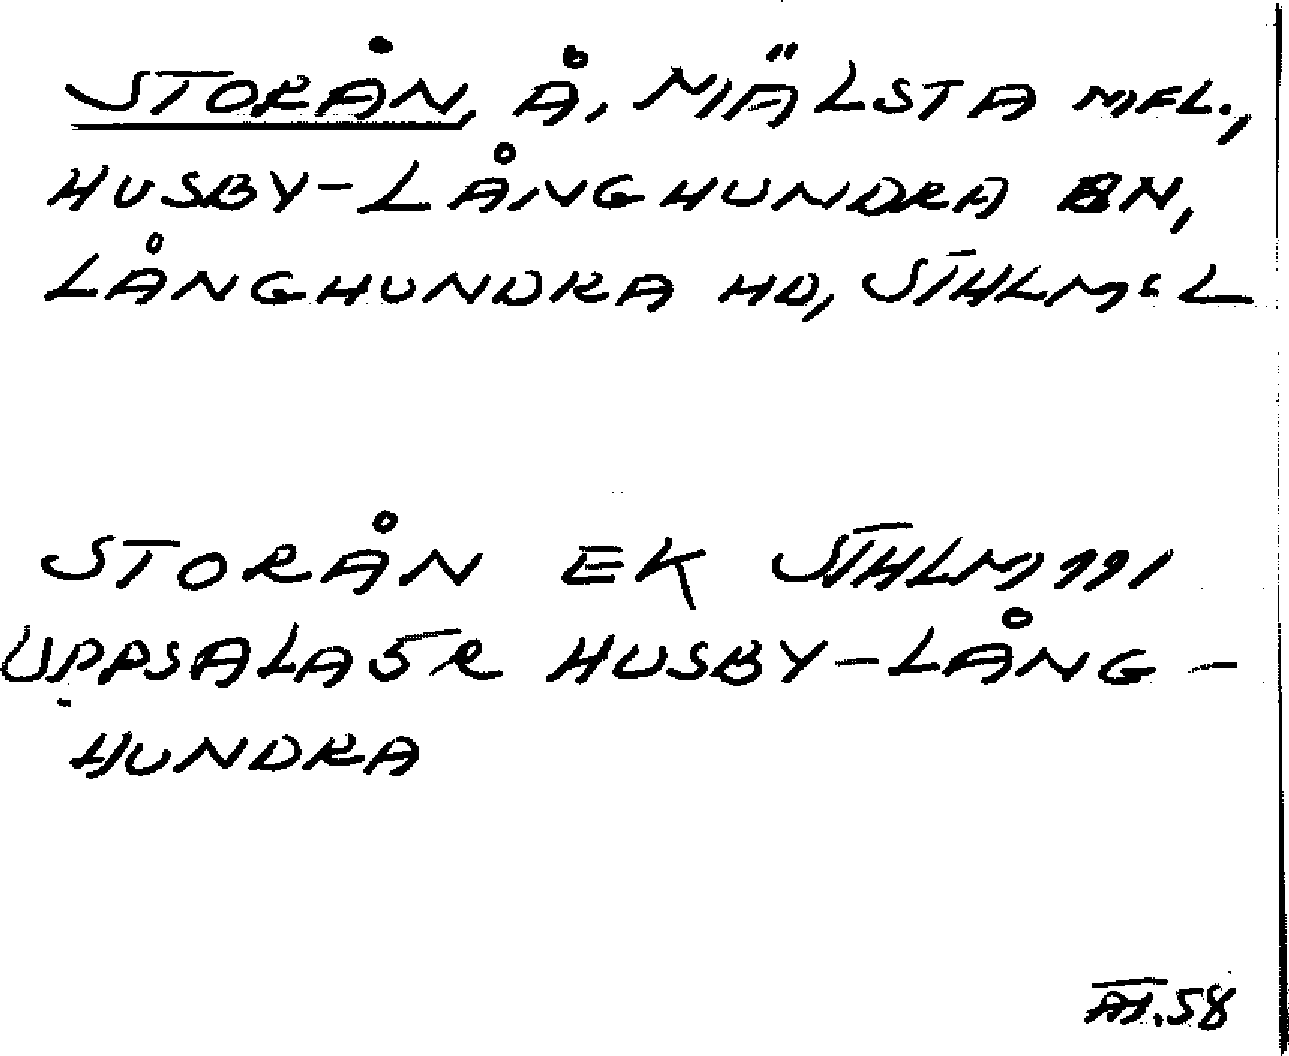 STORÅN, Å, NIÄLSTA MFL.,
HUSBY-LÅNGHUNDRA SN,
LÅNGHUNDRA HD, STHLMS L
STORÅN EK STHLM 111
UPPSALA 5R HUSBY-LÅNG-
HUNDRA
58